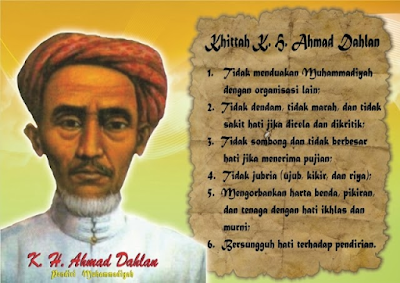 Khittah K. H. Ahmad Dahlan
1. Tidak menduakan Muhammadiyah
dengan organisasi lain;
2. Tidak dendam, tidak marah, dan tidak
sakit hati jika dicela dan dikritik;
3. Tidak sombong dan tidak berbesar
hati jika menerima pujian;
4. Tidak jubria (ujub, kikir, dan riya);
5. Mengorbankan harta benda, pikiran,
dan tenaga dengan hati ikhlas dan
murni;
6. Bersungguh hati terhadap pendirian.
K. H. Ahmad Dahlan
Pendiri Muhammadiyah